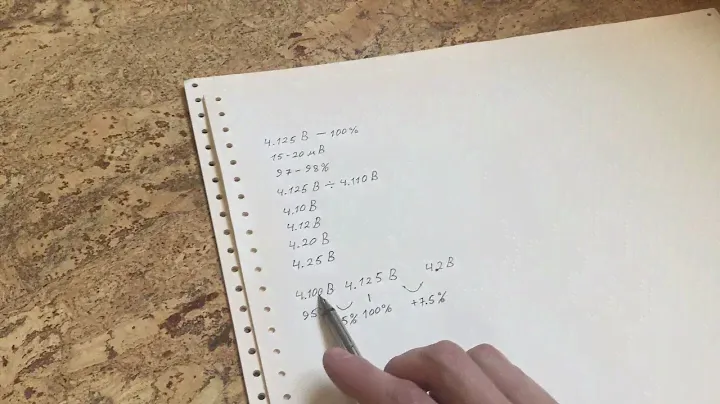 4.125 В – 100%
15-20 мВ
97-98%
4.125 В ÷ 4.110 В
4.10 В
4.12 В
4.20 В
4.25 В
4.100 В 4.125 В 4.2 В
95 5% 100% +7.5%